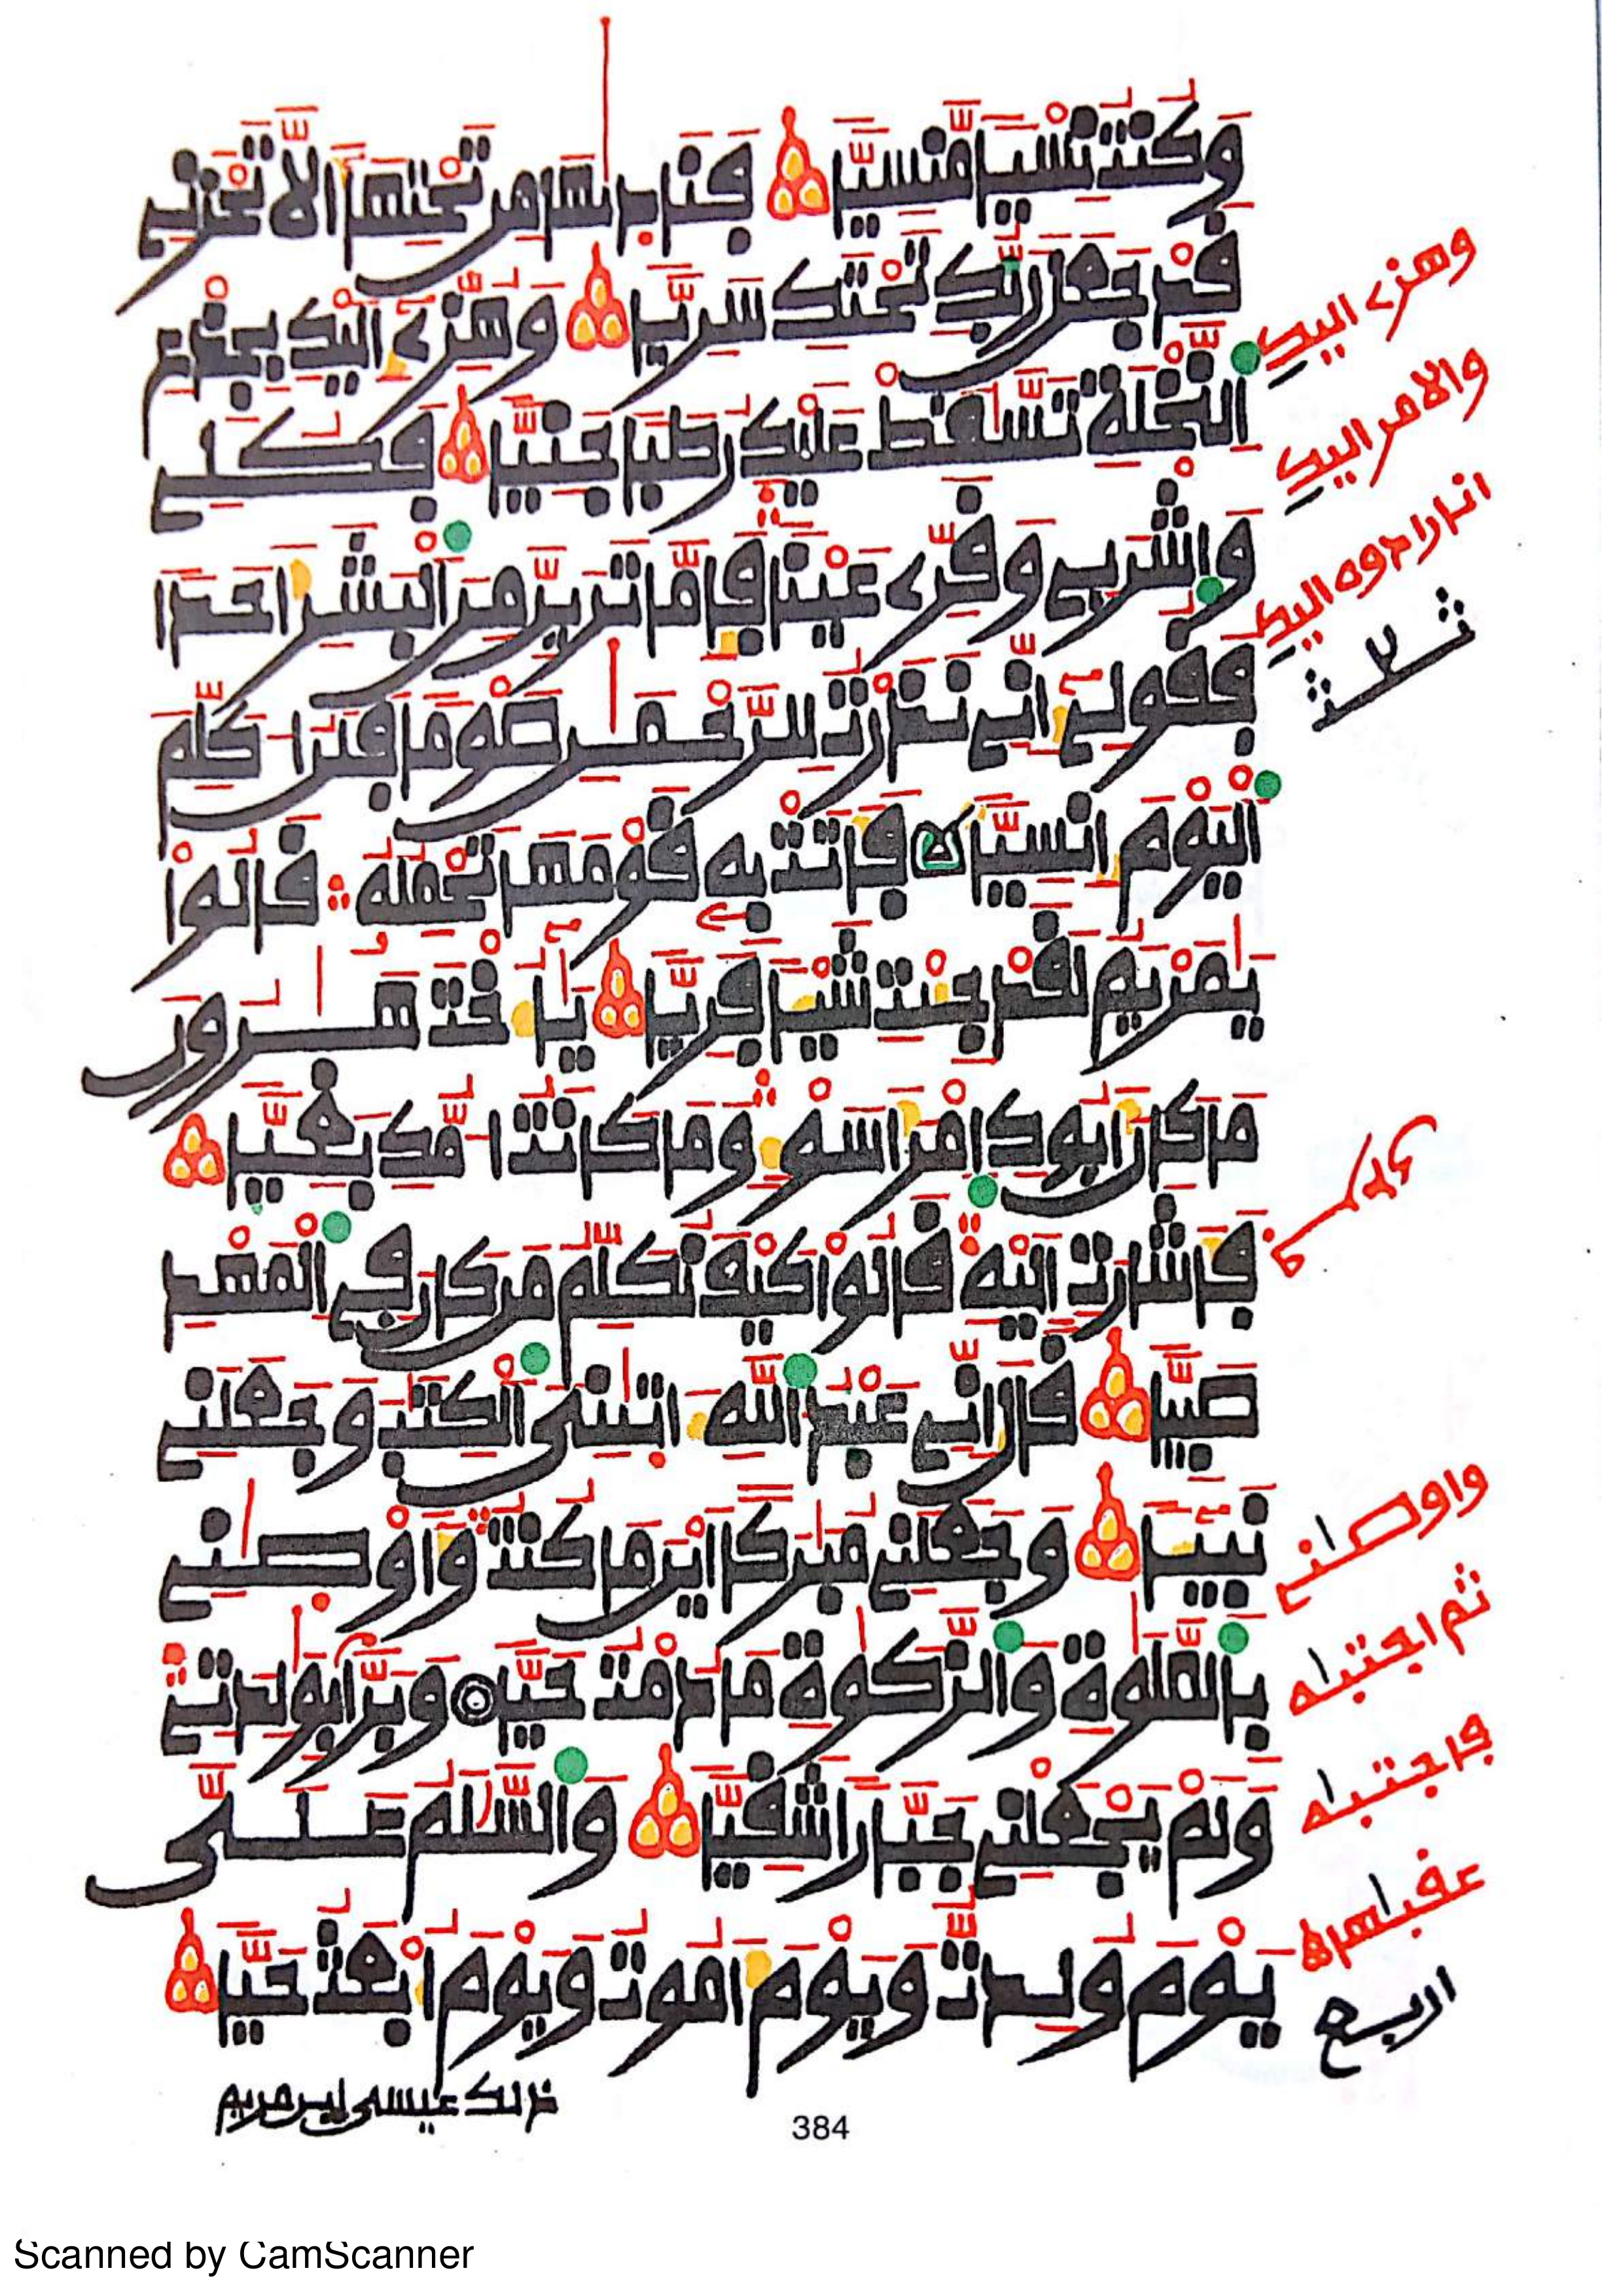 وَكُنتُ نِسْيًا مَّنسِيًّا فَنَادٰىٰهَا مِن تَحْتِهَا أَلَّا تَحْزَنِي
قَدْ جَعَلَ رَبُّكِ تَحْتَكِ سَرِيًّا وَهُزِّي إِلَيْكِ بِجِذْعِ
وهزے اليك
اِ۬لنَّخْلَةِ تَسَّٰقَطْ عَلَيْكِ رُطَبًا جَنِيًّا فَكُلِي
والامر اليك
وَاشْرَبِي وَقَرِّي عَيْنًا فَإِمَّا تَرَيِنَّ مِنَ اَ۬لْبَشَرِ أَحَدًا
انا رادوه اليك
فَقُولِي إِنِّي نَذَرْتُ لِلرَّحْمَٰنِ صَوْمًا فَلَنْ أُكَلِّمَ
ثلثة
اَ۬لْيَوْمَ إِنسِيًّا فَأَتَتْ بِهِ قَوْمَهَا تَحْمِلُهُ قَالُوا
يَٰمَرْيَمُ لَقَدْ جِئْتِ شَيْـًٔا فَرِيًّا يَا أُخْتَ هَٰرُونَ
مَا كَانَ أَبُوكِ اَمْرَأَ سَوْءٍ وَمَا كَانَتُ اُمُّكِ بَغِيًّا
فَأَشَارَتِ الَيْهِ قَالُوا كَيْفَ نُكَلِّمُ مَن كَانَ فِي اِ۬لْمَهْدِ
صَبِيًّا قَالَ إِنِّي عَبْدُ اُ۬للَّهِ ءَاتَىٰنِيَ اَ۬لْكِتَٰبَ وَجَعَلَنِي
نَبِيـًٔا وَجَعَلَنِي مُبَٰرَكًا أَيْنَ مَا كُنتُ وَأَوْصَٰنِي
واوصٰنے
بِالصَّلَوٰةِ وَالزَّكَوٰةِ مَا دُمْتُ حَيًّا وَبَرًّا بِوَٰلِدَتِي
ثم اجتبٰه
وَلَمْ يَجْعَلْنِي جَبَّارًا شَقِيًّا وَالسَّلَٰمُ عَلَيَّ
فاجتبٰه
يَوْمَ وُلِدتُّ وَيَوْمَ أَمُوتُ وَيَوْمَ أُبْعَثُ حَيًّا
عقبٰها
اربع
ذلك عيسى ابن مريم
384
Scanned by CamScanner